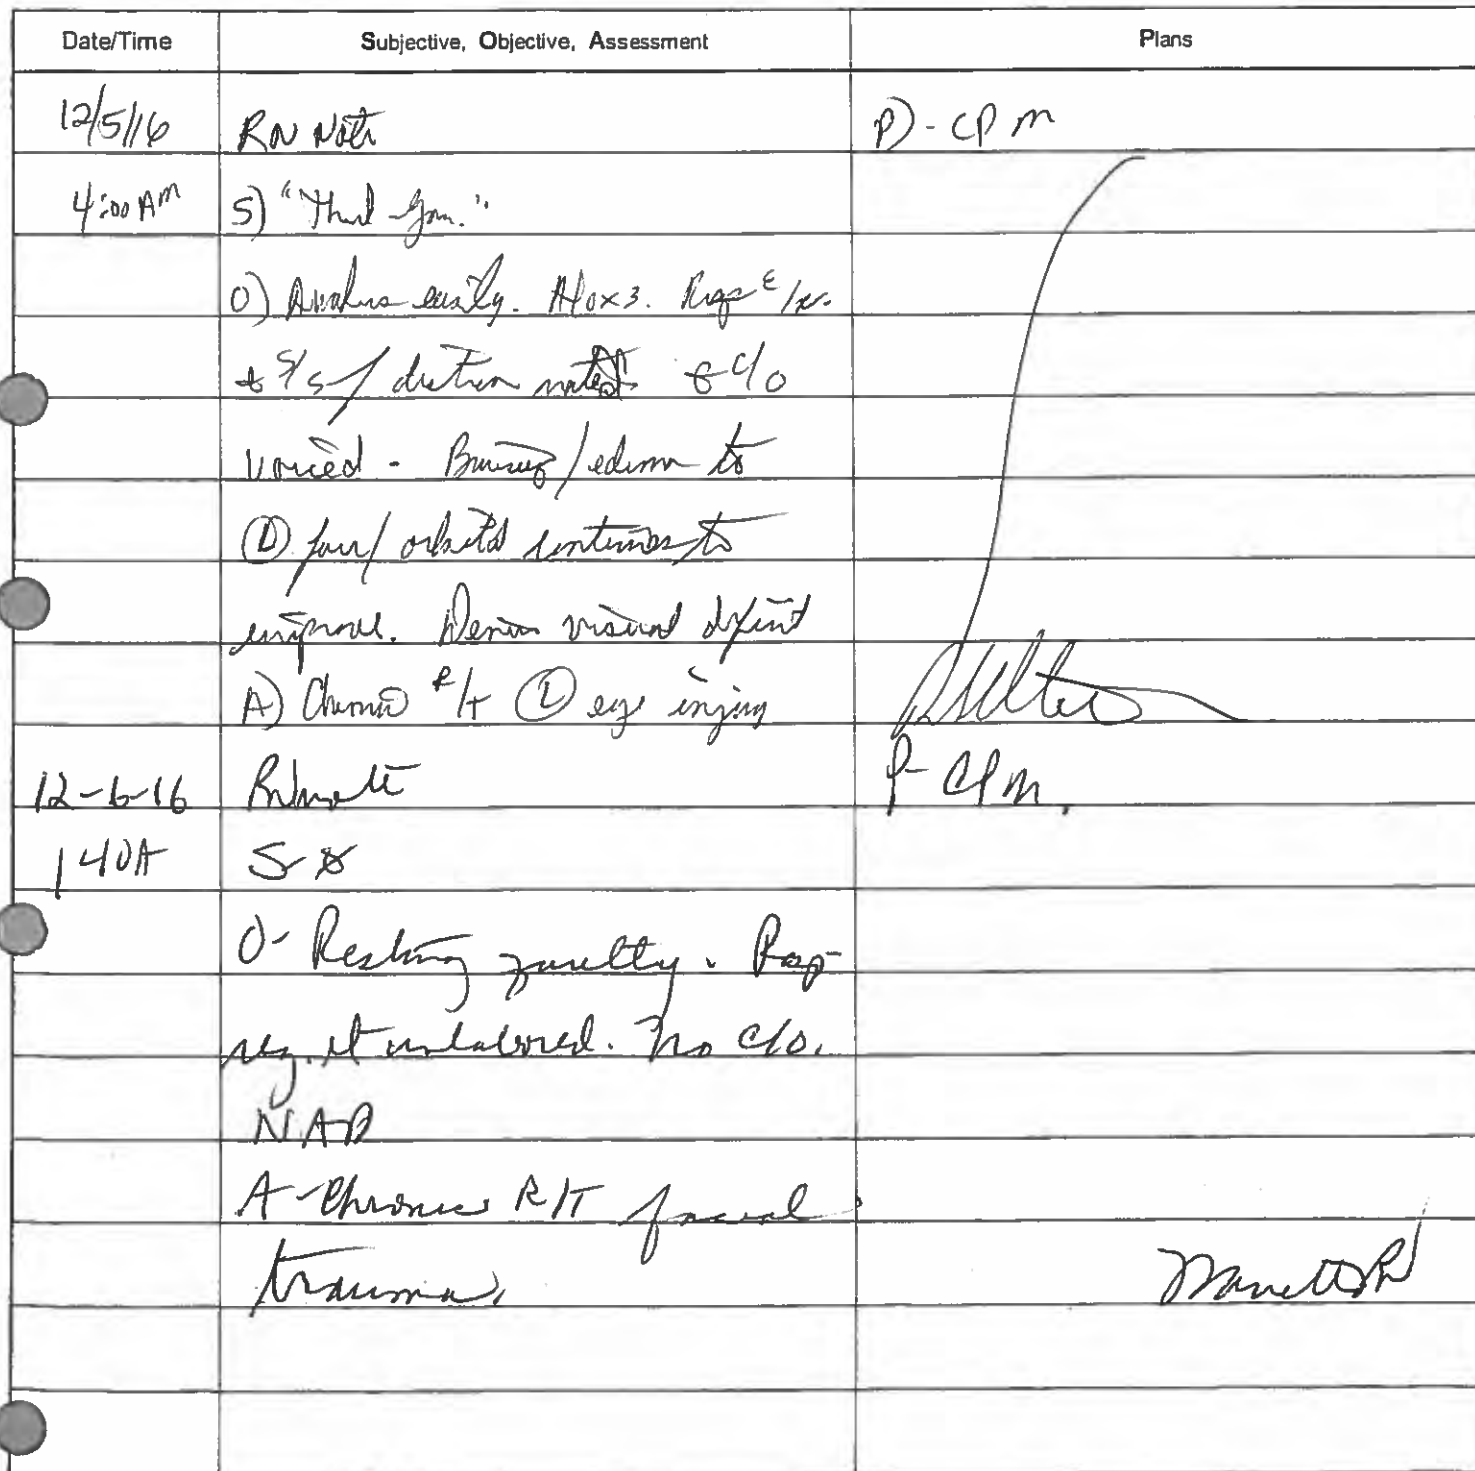 Date/Time Subjective, Objective, Assessment Plans
12/5/16 RN Note P)- CPM
4:00 AM S) "Thank you."
O) Awakens easily. A/Ox3.
s/s of noted c/o
voiced - Bruising/edema to
(L) face/orbital continues to
improve. Denies visual deficit
A) Chronic R/T (L) eye injury
12-6-16 RN note P- CPM.
140A S-
O- Resting quietly. Resp
reg. et unlabored. No c/o.
NAD
A- Chronic R/T facial
trauma.